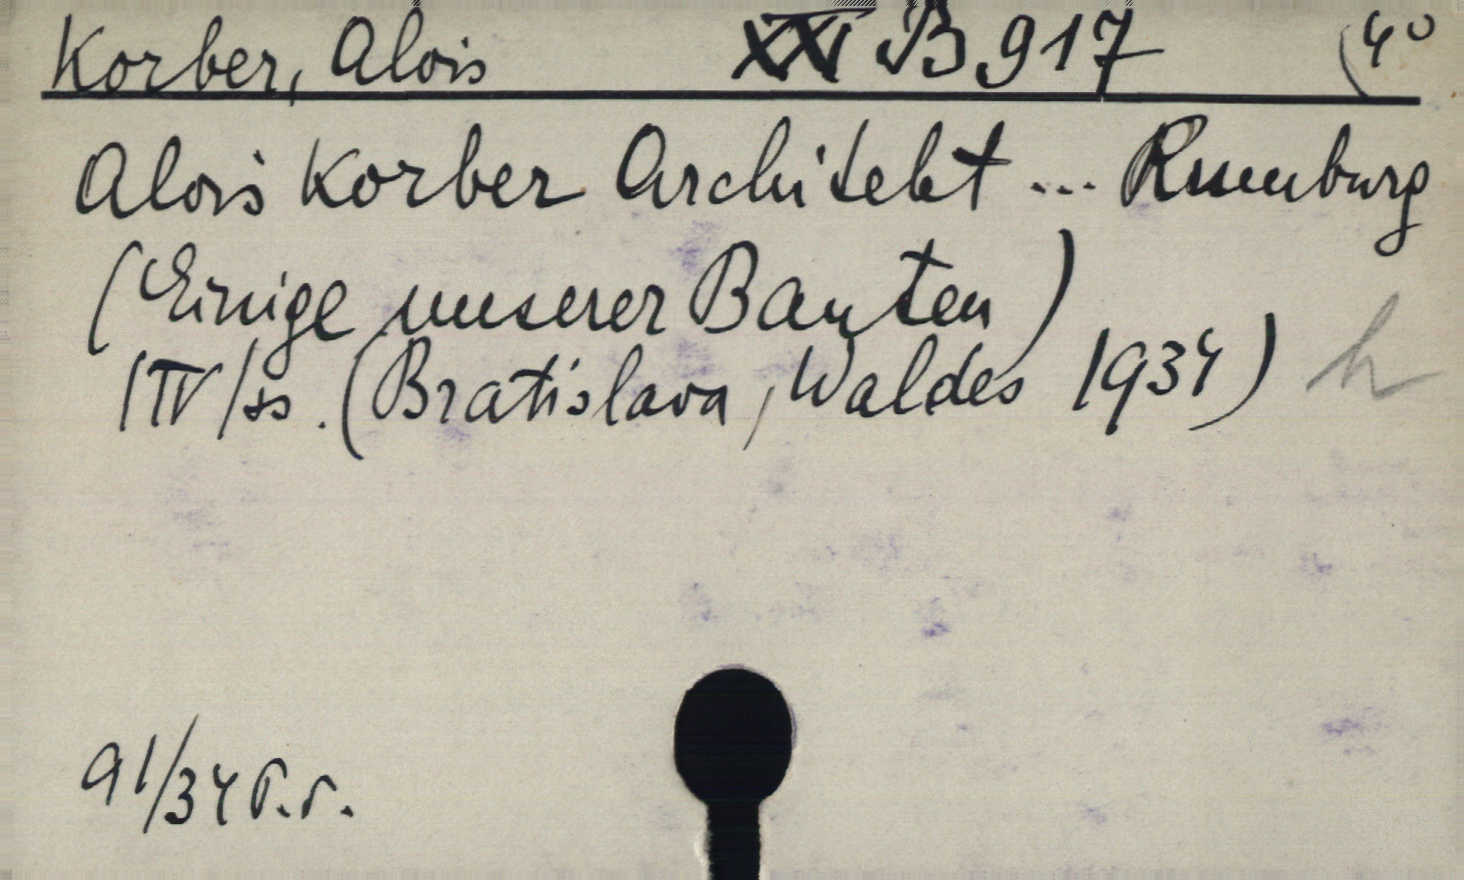 Korber, Alois XXI B 917 (4°
Alois Korber Architekt ... Rumburg
(Einige unserer Bauten)
(Bratislava, Waldes 1934)
91/34